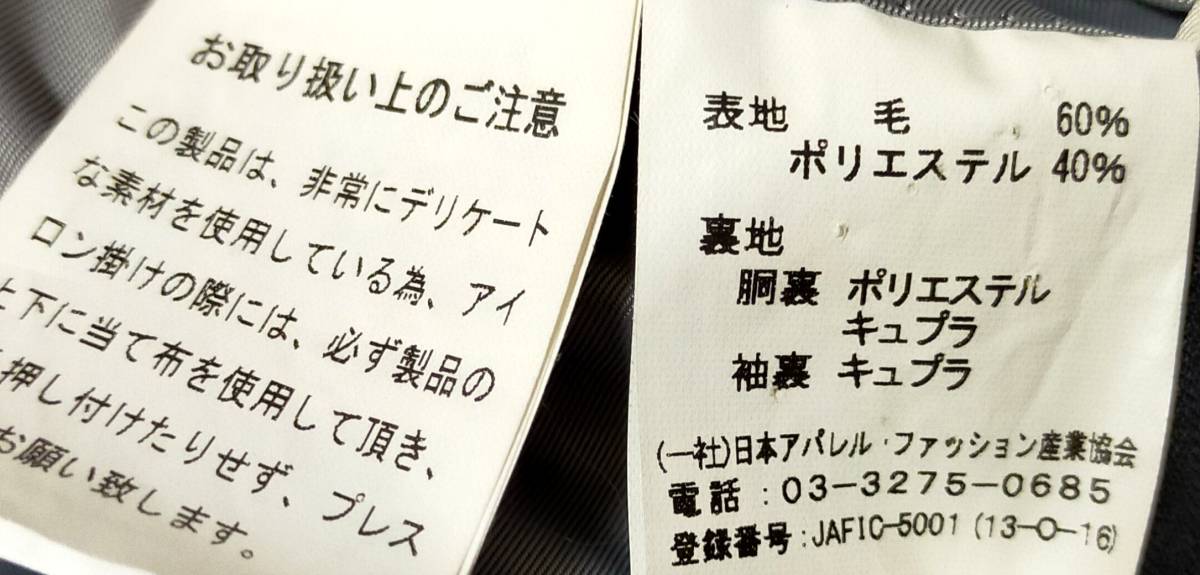 お取り扱い上のご注意
この製品は、非常にデリケート
な素材を使用している為、アイ
ロン掛けの際には、必ず製品の
上下に当て布を使用して頂き、
押し付けたりせず、プレス
お願い致します。
表地 毛 60%
ポリエステル 40%
裏地
胴裏 ポリエステル
キュプラ
袖裏 キュプラ
(一社)日本アパレル・ファッション産業協会
電話:03-3275-0685
登録番号:JAFIC-5001 (13-O-16)